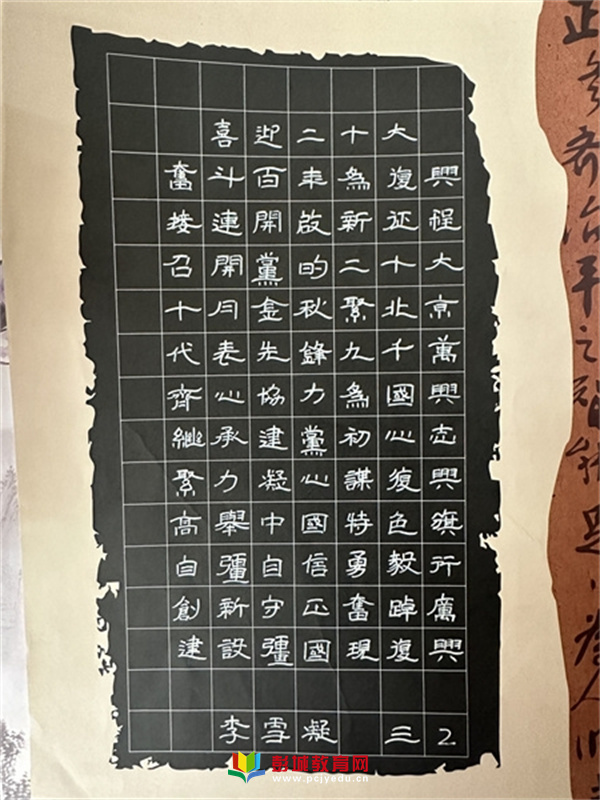 喜迎二十大
奮斗百年為復興
接連開啟新征程
召開黨的二十大
十月金秋聚北京
代表先鋒九千萬
齊心協力為國興
繼承建黨初心志
聚力凝心謀復興
高舉中國特色旗
自彊自信勇毅行
創新守正奮踔厲
建設彊國現復興
李雪凝 三2
彭城教育网
www.pcjyedu.cn